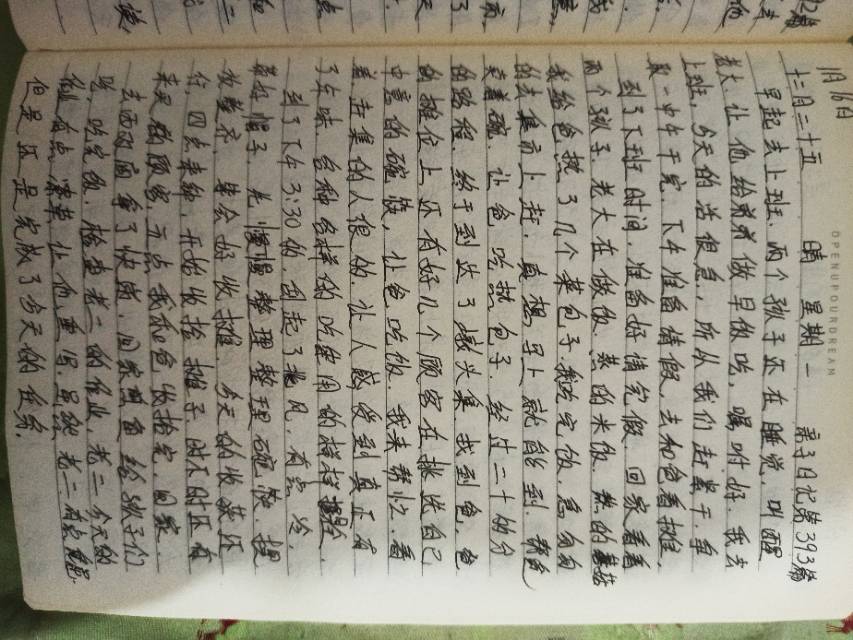 1月16日
OPENUPOURDREAM
十二月二十五 晴 星期一 亲子日记第393篇
早起去上班，两个孩子还在睡觉，叫醒
老大，让他给弟弟做早饭吃，嘱咐好，我去
上班，今天的活很急，所以我们赶紧干，争
取一中午干完，下午准备请假，去和爸看摊，
到了下班时间，准备好请完假，回家看看
两个孩子，老大在做饭，蒸的米饭，热的
我给爸热了几个菜包子，我吃完饭，急匆匆
的去集市上赶，真想早上就能到
卖着碗，让爸吃热包子，经过二十的分
的路程，终于到达了墩头集，找到爸，爸
的摊位上还有好几个顾客在挑选自己
中意的碗筷，让爸吃饭，我来帮忙，看
着赶集的人很的，让人感受到真正有
了年味，各种各样的吃的用的
到了下午3:30的，刮起了北风，有点冷，
戴好帽子，先慢慢整理整理碗筷，摆
放整齐，等会好收摊，今天的收获还
行，四点来钟，开始收拾摊子，时不时还有
来买的顾客，五点我和爸收拾完，回家，
去西边间拿了快递，回家里面给孩子们
吃，吃完饭，检查老二的作业，老二今天的
作业有点潦草，让他重写，虽然老二有点
但是还是完成了今天的任务。